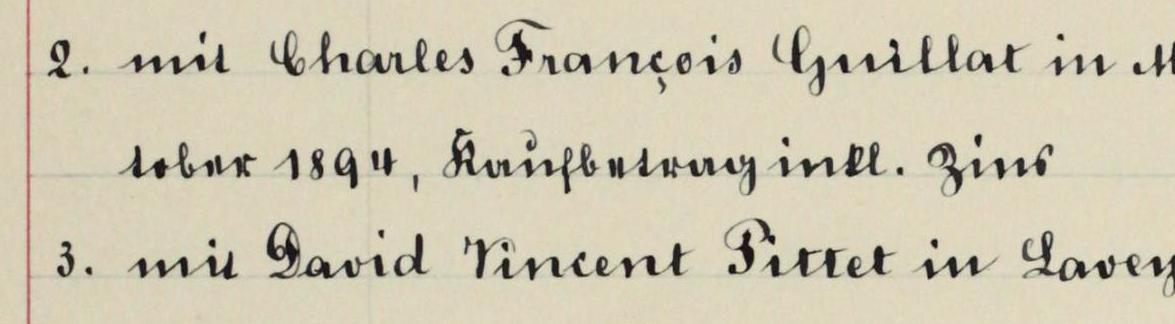 2. mit Charles François Guillat in
tober 1894, Kaufbetrag inkl. Zins
3. mit David Vincent Pittet in Lavey